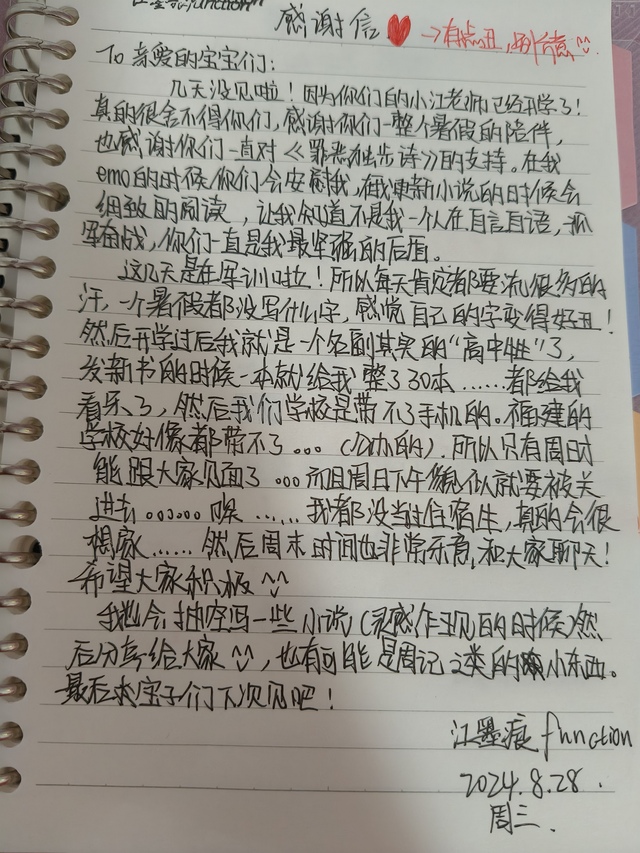 function"
感谢信 ❤ →有点丑,别介意^^
To 亲爱的宝宝们:
几天没见啦!因为你们的小江老师已经开学了!
真的很舍不得你们,感谢你们一整个暑假的陪伴,
也感谢你们一直对《罪恶独步诗》的支持。在我
emo的时候你们会安慰我,在我更新小说的时候会
细致的阅读,让我知道不是我一个人在自言自语,孤
军奋战,你们一直是我最坚强的后盾。
这几天是在军训啦!所以每天肯定都要流很多的
汗,一个暑假都没写什么字,感觉自己的字变得好丑!
然后开学过后我就是一个名副其实的“高中牲”了,
发新书的时候一本就给我整了30本……都给我
看乐了,然后我们学校是带不了手机的。福建的
学校好像都带不了...(公办的).所以只有周日时
能跟大家见面了...而且周日下午貌似就要被关
进去......唉......我都没当过住宿生,真的会很
想家......然后周末时间也非常乐意和大家聊天!
希望大家积极^^
我也会抽空写一些小说(灵感作现的时候)然
后分享给大家^^,也有可能是周记之类的小东西。
最后求宝子们下次见吧!
江墨痕function
2024.8.28.
周三.